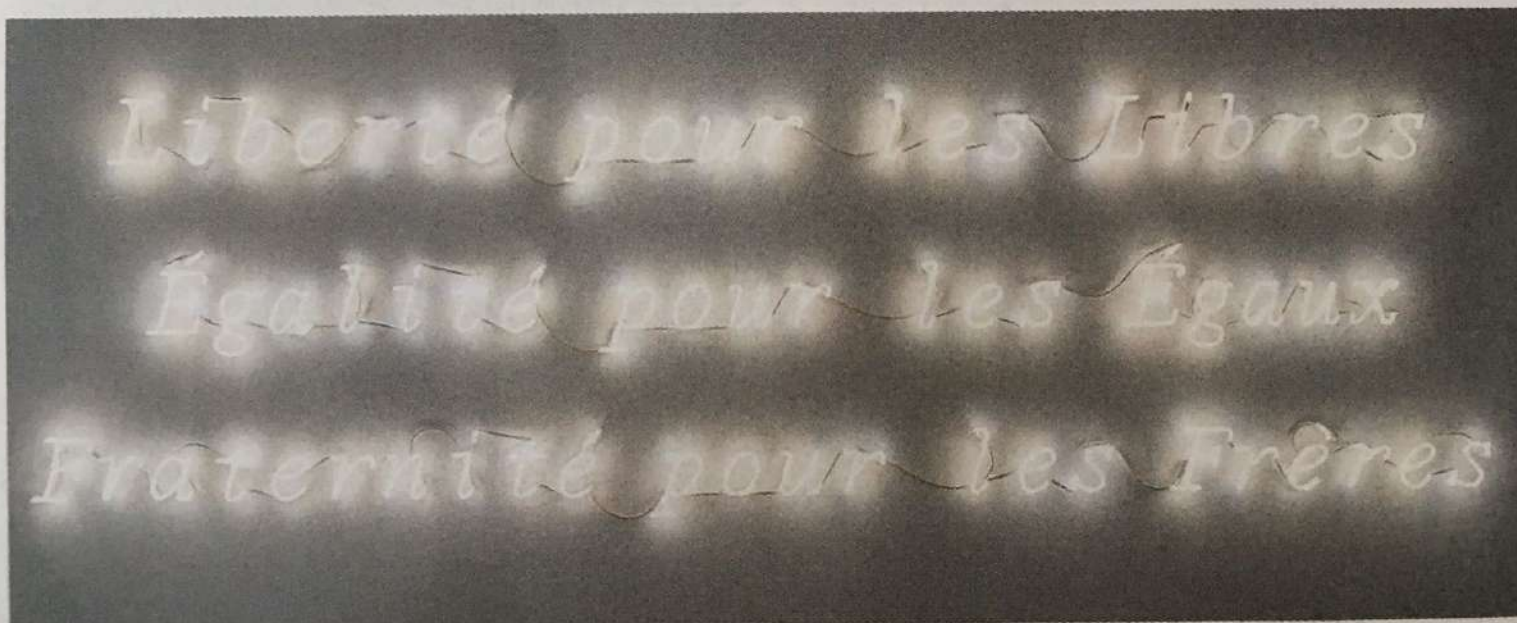 Liberté pour les Libres
Égalité pour les Égaux
Fraternité pour les Frères